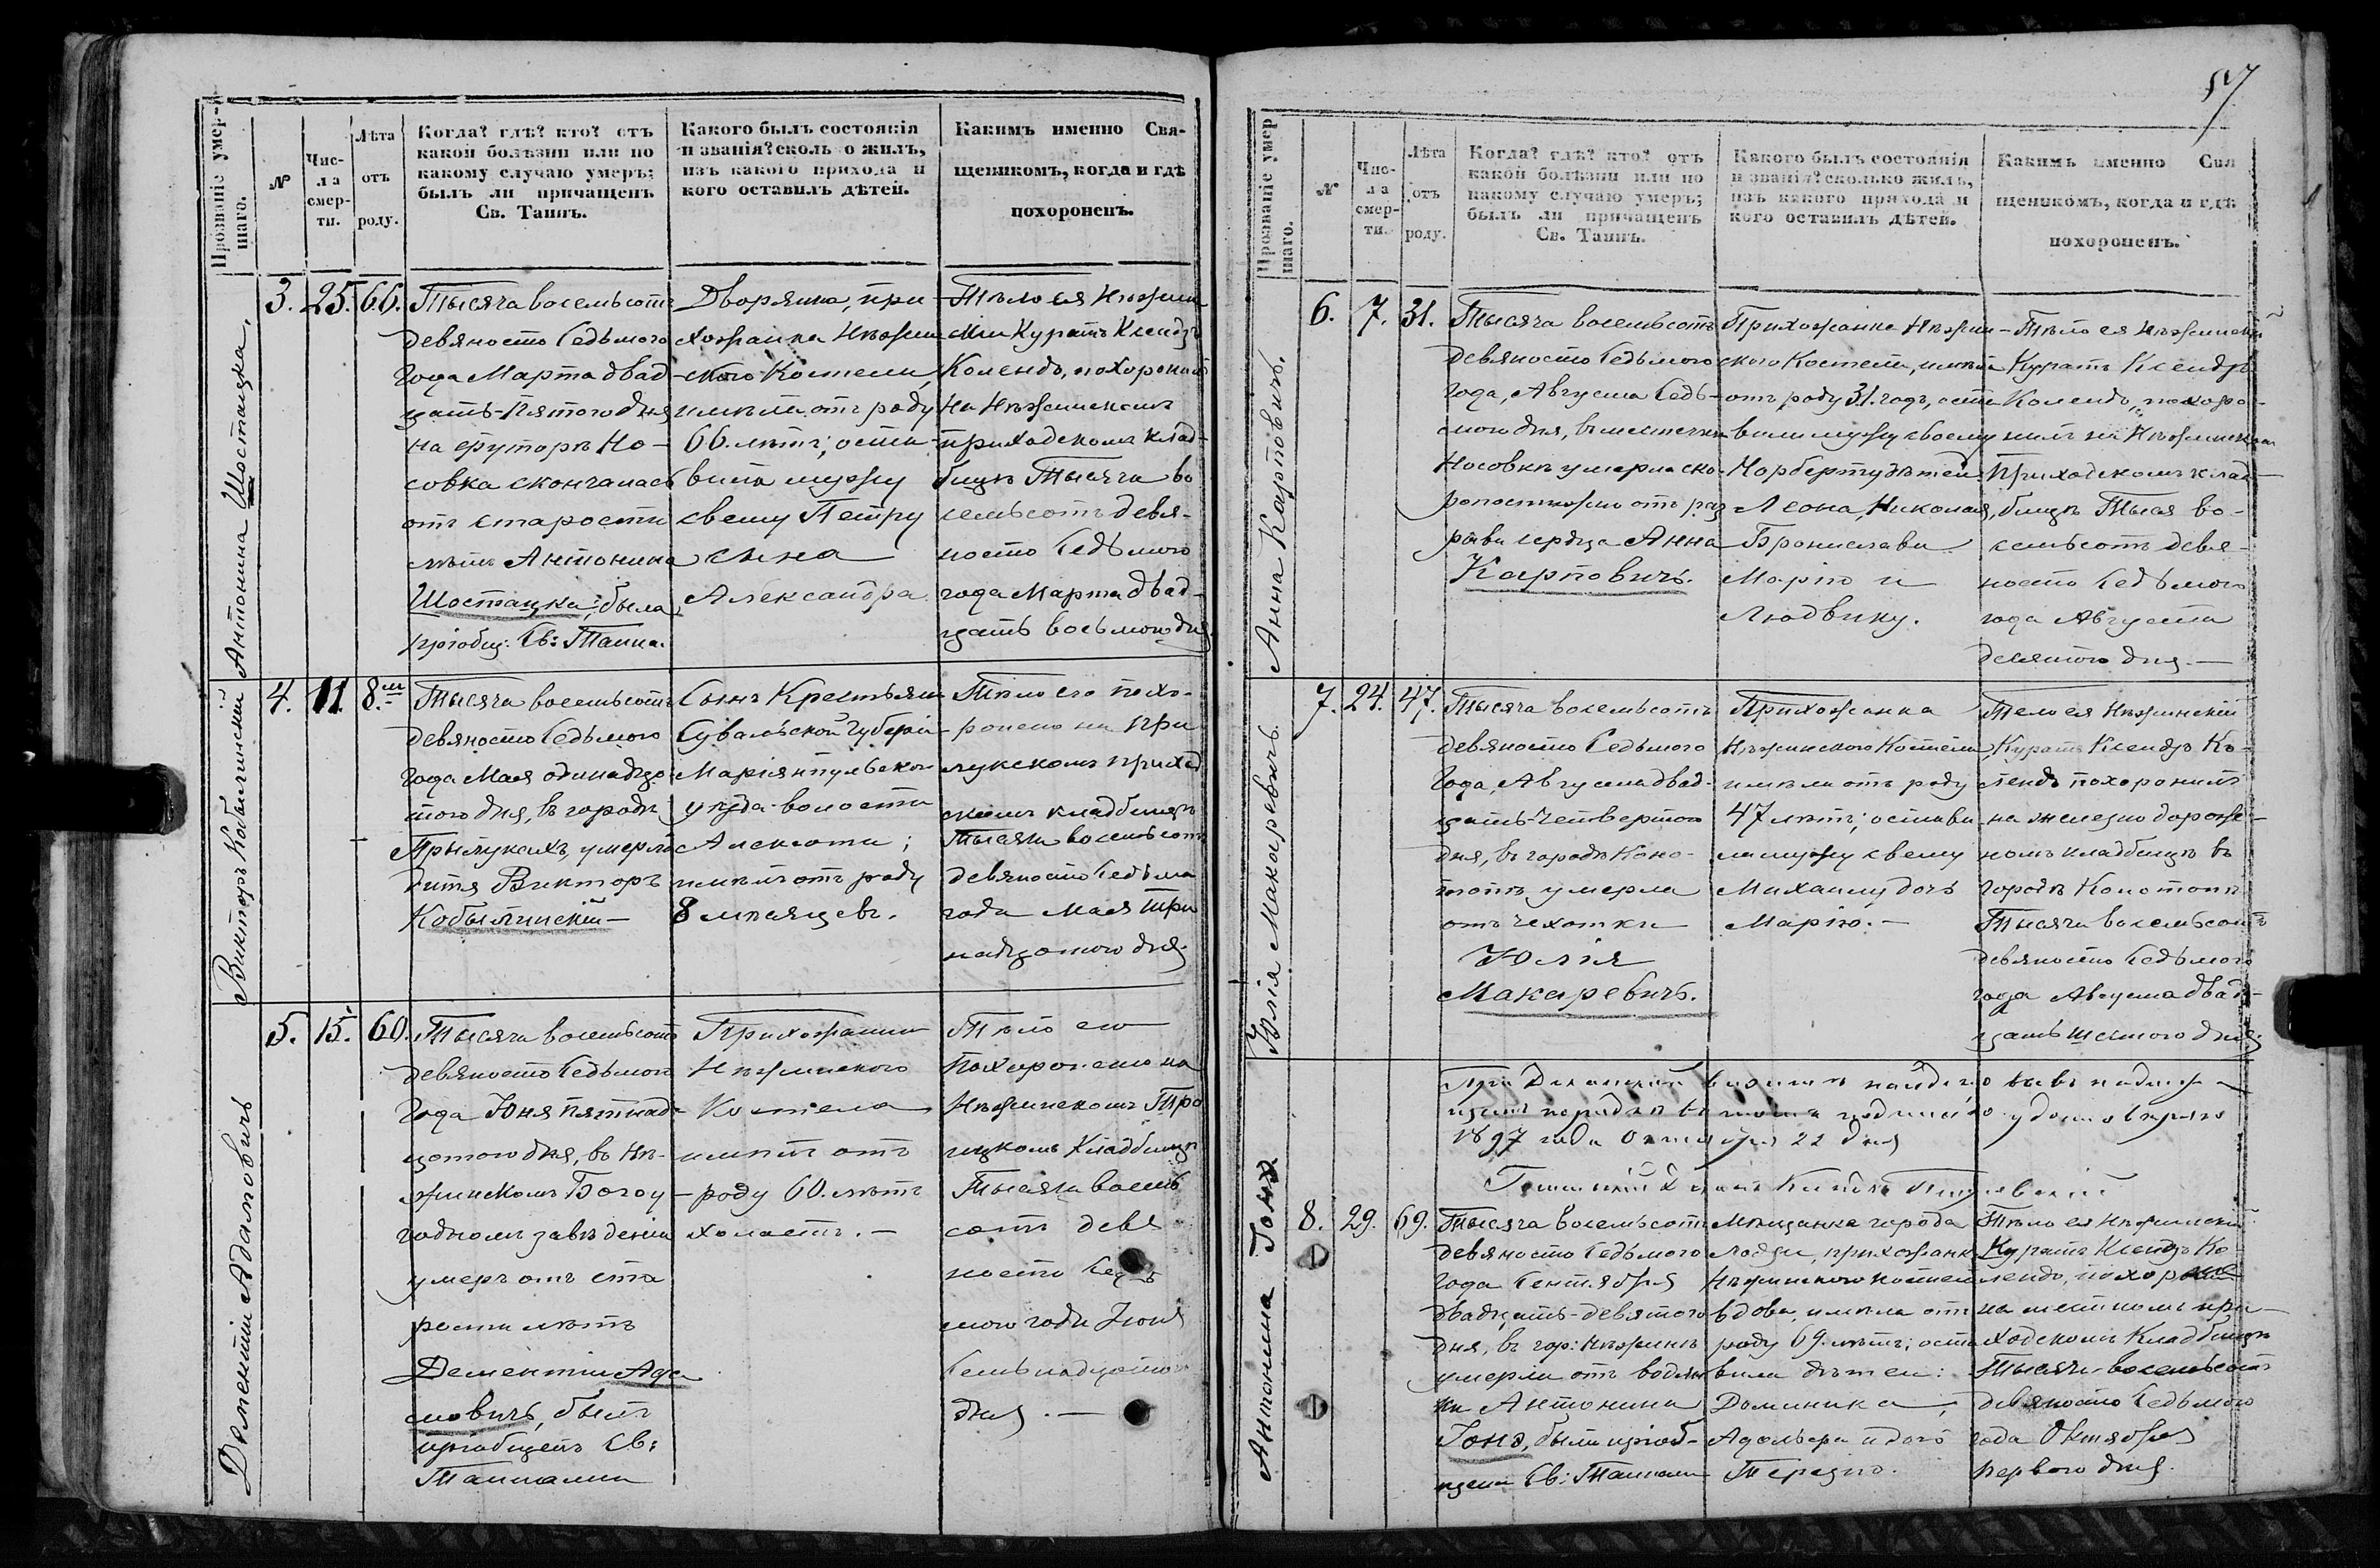 Прозваніе умер-
шаго.
№
Чис-
ла
смер-
ти.
Лѣта
отъ
роду.
Когда? гдѣ? кто? отъ
какой болѣзни или по
какому случаю умеръ;
былъ ли причащенъ
Св. Таинъ.
Какого былъ состоянія
и званія? сколь о жилъ,
изъ какого прихода и
кого оставилъ дѣтей.
Какимъ именно Свя-
щенникомъ, когда и гдѣ
похороненъ.
Антонина Шостацка,
3.
25.
66.
Тысяча восемьсотъ
девяносто седьмого
года Марта двад-
цать-пятого дня
на хуторѣ Но-
совка скончалась
отъ старости
лѣтъ Антонина
Шостацка; была
пріобщ: Св: Таина.
Дворянка, при-
хожанка Нѣжин-
ского Костела,
имѣла отъ роду
66. лѣтъ; оста-
вила мужу
своему Петру
сына
Александра
Тѣло ея Нѣжин
скій Куратъ Ксендзъ
Колендо, похоронилъ
на Нѣжинскомъ
приходскомъ клад-
бищѣ Тысяча во
семьсотъ девя-
носто седьмого
года Марта двад-
цать восьмого дня.
Викторъ Кобылинскій
4.
11.
8.м
Тысяча восемьсотъ
девяносто седьмого
года Мая одинадца
того дня, въ городѣ
Прилукахъ, умерло
дитя Викторъ
Кобылинскій —
Сынъ Крестьян
Сувальской Губерніи
Маріямпульскаго
уѣзда волости
Алексоти;
имѣлъ отъ роду
8 мѣсяцевъ.
Тѣло его похо-
ронено на При
лукскомъ приход
скомъ кладбищѣ
Тысяча восемьсотъ
девяносто седьмо
года Мая три
надцатого дня.
Дементій Адамовичъ
5.
15.
60.
Тысяча восемьсотъ
девяносто седьмого
года Юня пятнад-
цатого дня, въ Нѣ-
жинскомъ Богоу-
годномъ заведеніи
умеръ отъ ста
рости лѣтъ
Дементій Ада
мовичъ, былъ
пріобщенъ Св:
Таинами
Прихожанин
Нѣжинского
Костела
имѣлъ отъ
роду 60. лѣтъ
холостъ. —
Тѣло его
похоронено на
Нѣжинскомъ Тро
ицкомъ Кладбищѣ
Тысяча восемь
сотъ девя
носто седь
мого года Юня
семьнадцатого
дня. —
57
Прозваніе умер
шаго.
№
Чис-
ла
смер-
ти.
Лѣта
отъ
роду.
Когда? гдѣ? кто? отъ
какой болѣзни или по
какому случаю умеръ;
былъ ли причащенъ
Св. Таинъ.
Какого былъ состоянія
и званія? сколько жилъ,
изъ какого прихода и
кого оставилъ дѣтей.
Какимъ именно Свя
щенникомъ, когда и гдѣ
похороненъ.
Анна Карповичъ.
6.
7.
31.
Тысяча восемьсотъ
девяносто седьмого
года, Августа седь-
мого дня, въ местечкѣ
Носовкѣ умерла ско-
ропостижно отъ раз-
рыва сердца Анна
Карповичъ.
Прихожанка Нѣжин-
ского Костела, имѣла
отъ роду 31. годъ, оста
вила мужу своему
Норберту дѣтей:
Леона, Николая,
Бронислава
Марію и
Людвику.
Тѣло ея Нѣжинскій
Куратъ Ксендзъ
Колендо, похоро-
нилъ на Нѣжинскомъ
Приходскомъ клад-
бищѣ Тысяч во-
семьсотъ девя-
носто седьмого
года Августа
девятого дня. —
Юлія Макаревичъ.
7.
24.
47.
Тысяча восемьсотъ
девяносто седьмого
года, Августа двад-
цать-четвертого
дня, въ городѣ Коно-
топѣ умерла
отъ чехотки
Юлія
Макаревичъ.
Прихожанка
Нѣжинского Костела,
имѣла отъ роду
47 лѣтъ; остави
ла мужу своему
Михаилу дочь
Марію. —
Тело ея Нѣжинскій
Куратъ Ксендзъ Ко-
лендо похоронилъ
на железно дорож-
номъ кладбищѣ въ
городѣ Конотопѣ
Тысяча восемьсотъ
девяносто седьмого
года Августа двад-
цать шестого дня.
При Деканской визитѣ найдено въ надлежа
щемъ порядкѣ въ томъ подписью удостовѣряю
1897 года Октября 22 дня
Антонина Гонз
8.
29.
69.
Тысяча восемьсотъ
девяносто седьмого
года Сентября
двадцать-девятого
дня, въ гор: Нѣжинѣ
умерла отъ водян
ки Антонина
Гонз, была пріоб-
щена Св: Таинами
Мѣщанка города
Лодзи, прихожанк
Нѣжинского костела
вдова, имѣла отъ
роду 69. лѣтъ; оста
вила дѣтей:
Доминика,
Адольфа и дочь
Терезію.
Тѣло ея Нѣжинскій
Куратъ Ксендзъ Ко
лендо, похорони
на местномъ при-
ходскомъ Кладбищѣ
Тысяча восемьсотъ
девяносто седьмого
года Октября
первого дня.